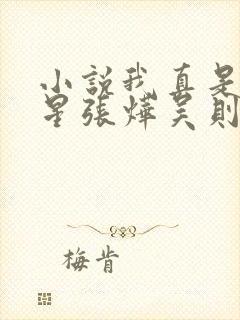 小說我真是
星張燁吴則
梅肯